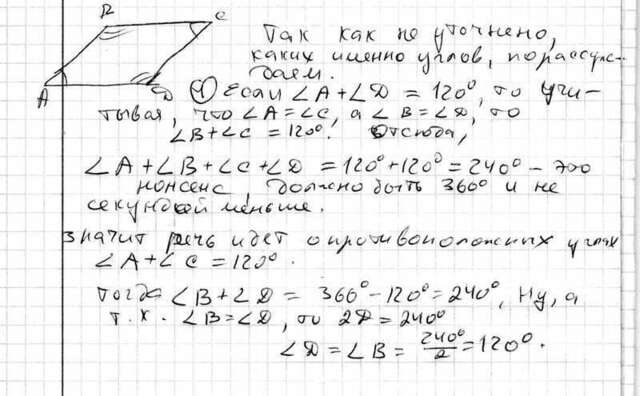 B C
Так как не уточнено,
каких именно углов, порассуж-
даем.
A D
① Если ∠A+∠D = 120°, то учи-
тывая, что ∠A=∠C, а ∠B=∠D, то
∠B+∠C = 120°. Отсюда,
∠A+∠B+∠C+∠D = 120°+120° = 240° – это
нонсенс, должно быть 360° и не
секундой меньше.
Значит речь идет о противоположных углах
∠A+∠C = 120°.
Тогда ∠B+∠D = 360°-120°=240°, Ну, а
т.к. ∠B=∠D, то 2D = 240°
∠D = ∠B = 240°/2 = 120°.